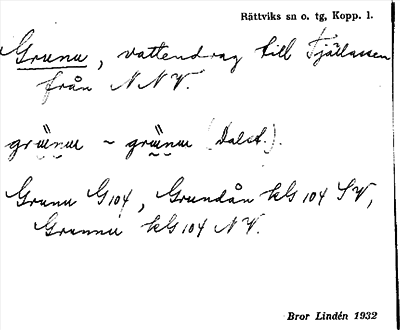 Rättviks sn o. tg, Kopp. l.
Grunu, vattendrag till Fjätlassen
från NNV.
grünu ~ grünu (Dalat.).
Grunu G104, Grundån kG 104 SV,
Grunnu kG 104 NV.
Bror Lindén 1932